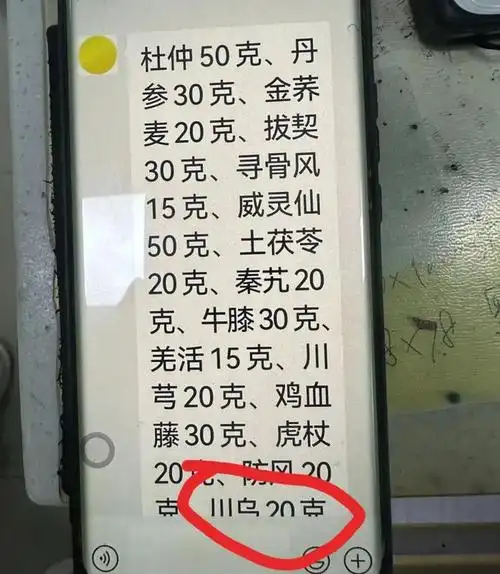 杜仲50克、丹
参30克、金荞
麦20克、拔契
30克、寻骨风
15克、威灵仙
50克、土茯苓
20克、秦艽20
克、牛膝30克、
羌活15克、川
芎20克、鸡血
藤30克、虎杖
20克、防风20
克、川乌20克